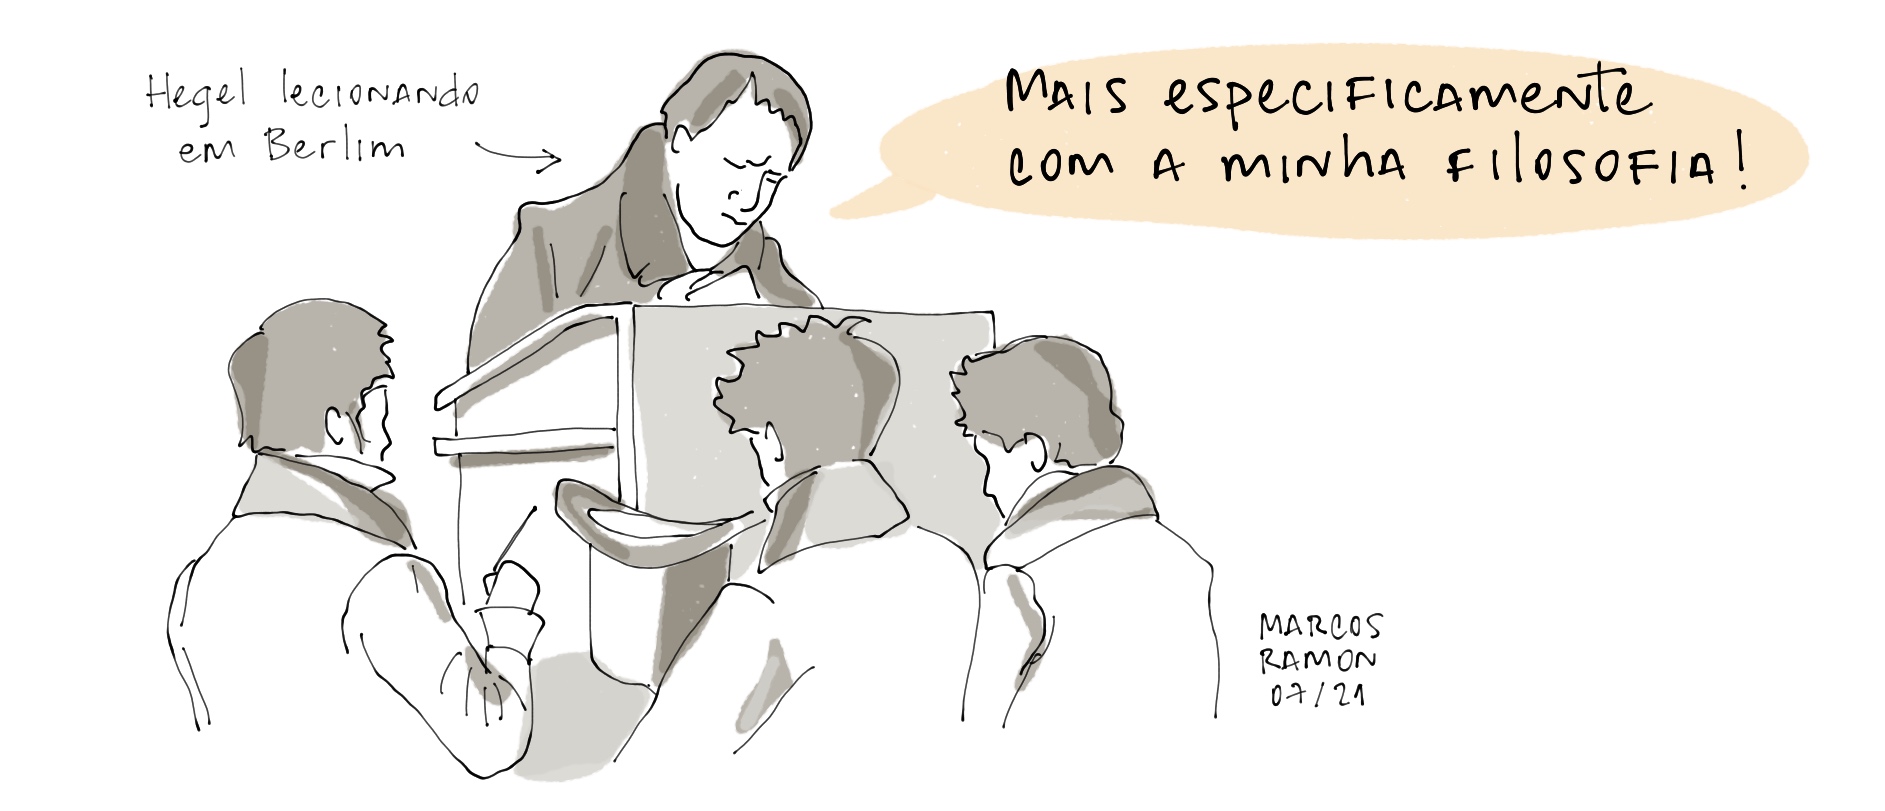 Hegel lecionando
em Berlim
Mais especificamente
com a minha filosofia!
MARCOS
RAMON
07/21